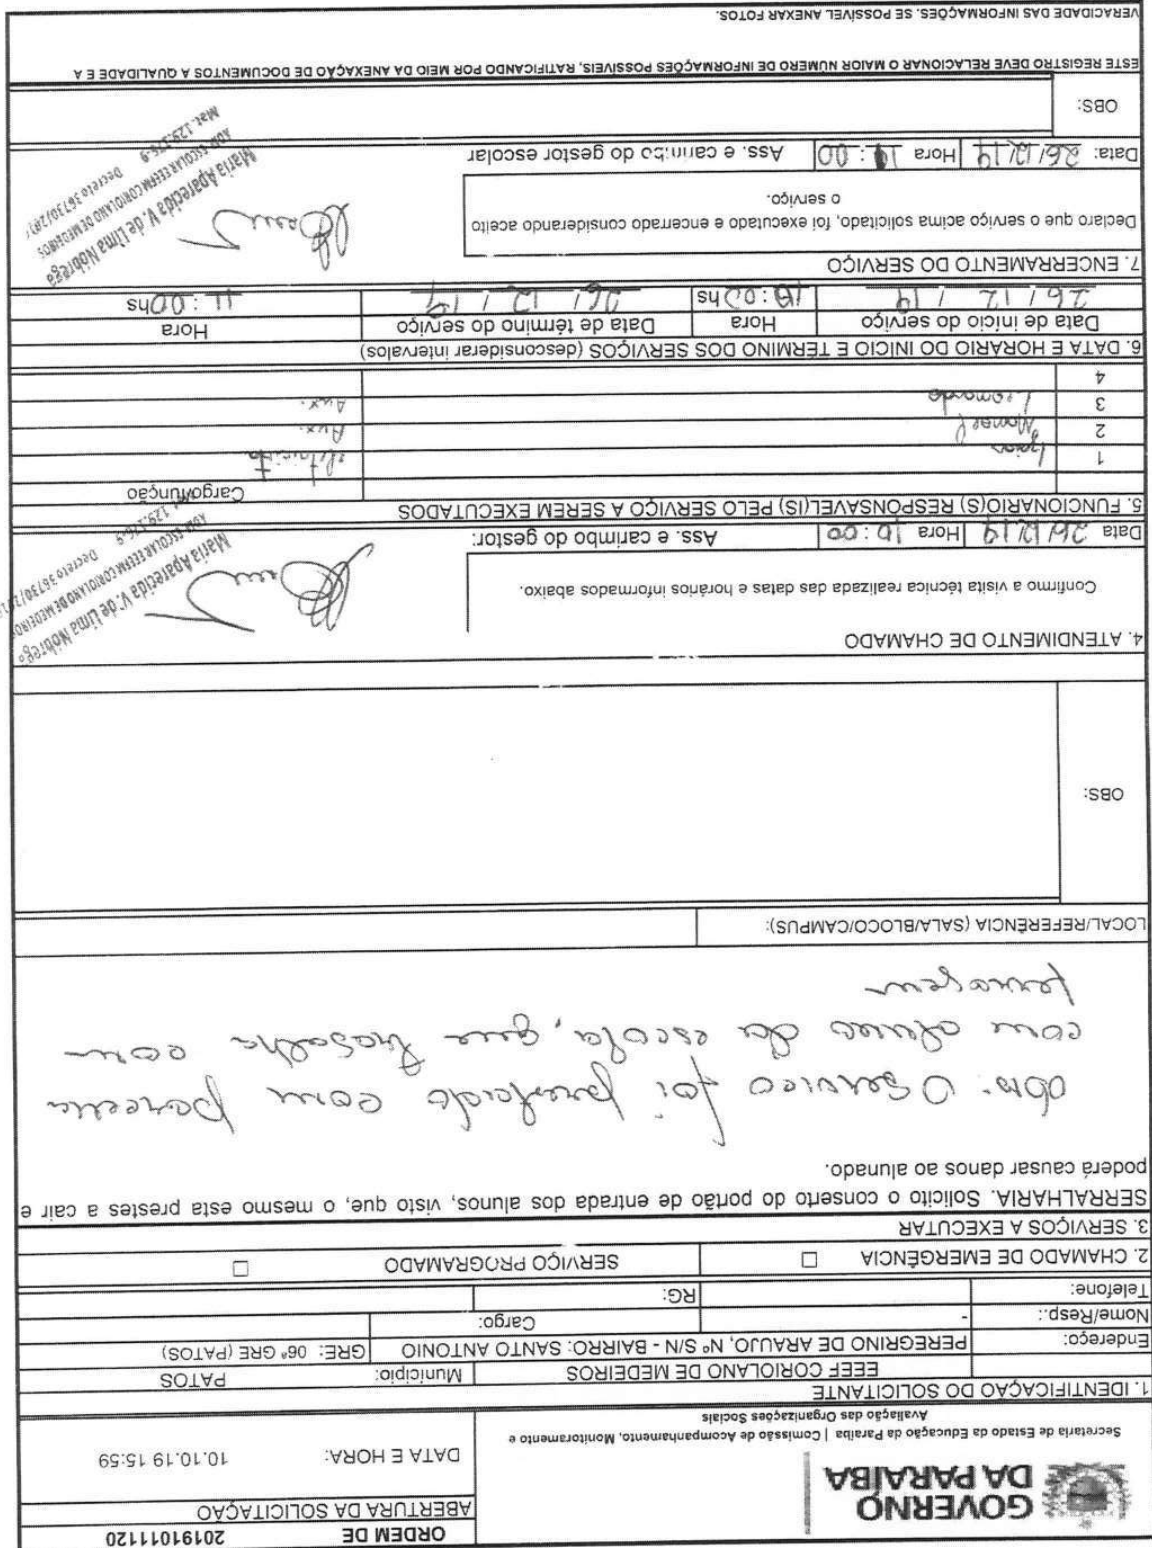 GOVERNO
DA PARAÍBA
Secretaria de Estado da Educação da Paraíba | Comissão de Acompanhamento, Monitoramento e
Avaliação das Organizações Sociais
ORDEM DE 20191011120
ABERTURA DA SOLICITAÇAO
DATA E HORA: 10.10.19 15:59
1. IDENTIFICAÇAO DO SOLICITANTE
EEEF CORIOLANO DE MEDEIROS Município: PATOS
Endereço: PEREGRINO DE ARAUJO, Nº S/N - BAIRRO: SANTO ANTONIO GRE: 06ª GRE (PATOS)
Nome/Resp.: - Cargo:
Telefone: RG:
2. CHAMADO DE EMERGÊNCIA ☐ SERVIÇO PROGRAMADO ☐
3. SERVIÇOS A EXECUTAR
SERRALHARIA. Solicito o conserto do portão de entrada dos alunos, visto que, o mesmo esta prestes a cair e
poderá causar danos ao alunado.
obs: O serviço foi com
com da escola, que trabalha com
LOCAL/REFERÊNCIA (SALA/BLOCO/CAMPUS):
OBS:
4. ATENDIMENTO DE CHAMADO
Confirmo a visita técnica realizada das datas e horários informados abaixo.
Data 26/12/19 Hora 10:00 Ass. e carimbo do gestor:
Maria Aparecida V. de Lima Nóbrega
ADM ESCOLAR EEEFM CORIOLANO DE MEDEIROS
Decreto 36730/
129.176-9
5. FUNCIONARIO(S) RESPONSAVEL(IS) PELO SERVIÇO A SEREM EXECUTADOS
Cargo/função
1
2 Manoel Aux.
3 Leonardo Aux.
4
6. DATA E HORARIO DO INICIO E TERMINO DOS SERVIÇOS (desconsiderar intervalos)
Data de início do serviço Hora Data de término do serviço Hora
26 / 12 / 19 10:00 hs 26 / 12 / 19 11:00 hs
7. ENCERRAMENTO DO SERVIÇO
Declaro que o serviço acima solicitado, foi executado e encerrado considerando aceito
o serviço.
Data: 26/12/19 Hora 11:00 Ass. e carimbo do gestor escolar
Maria Aparecida V. de Lima Nóbrega
ADM ESCOLAR EEEFM CORIOLANO DE MEDEIROS
Mat. 129.176-9 Decreto 36730/
OBS:
ESTE REGISTRO DEVE RELACIONAR O MAIOR NUMERO DE INFORMAÇÕES POSSIVEIS, RATIFICANDO POR MEIO DA ANEXAÇÃO DE DOCUMENTOS A QUALIDADE E A
VERACIDADE DAS INFORMAÇÕES. SE POSSÍVEL ANEXAR FOTOS.